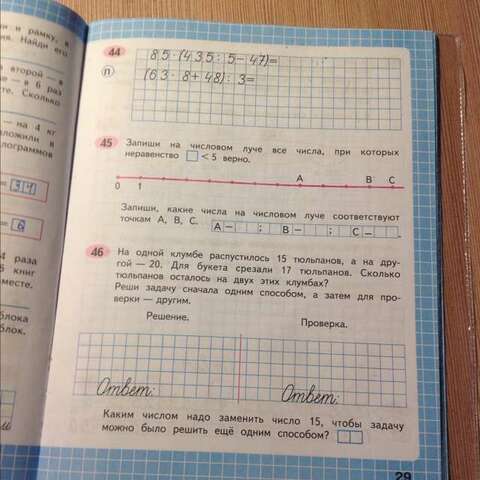 и и рамку, в
ия. Найди его
второй — в
е — в 6 раз
те. Сколько
— на 4 кг
ложили в
лограммов
= 34
= 6
4 раза
5 книг
месте.
блока
блок.
44
п
85·(435:5−47)=
(63·8+48):3=
45 Запиши на числовом луче все числа, при которых
неравенство □ < 5 верно.
А В С
0 1
Запиши, какие числа на числовом луче соответствуют
точкам А, В, С. А – ; В – ; С – .
46 На одной клумбе распустилось 15 тюльпанов, а на дру-
гой — 20. Для букета срезали 17 тюльпанов. Сколько
тюльпанов осталось на двух этих клумбах?
Реши задачу сначала одним способом, а затем для про-
верки — другим.
Решение. Проверка.
Ответ: Ответ:
Каким числом надо заменить число 15, чтобы задачу
можно было решить ещё одним способом?
29